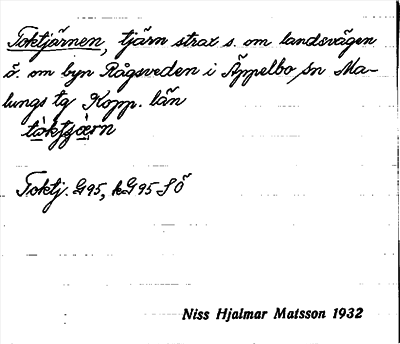 Toktjärnen, tjärn strax s. om landsvägen
ö. om byn Rågsveden i Äppelbo sn Ma-
lungs tg Kopp. län
tòktjæ̀rn
Toktj. G95, hG95 SÖ
Niss Hjalmar Matsson 1932